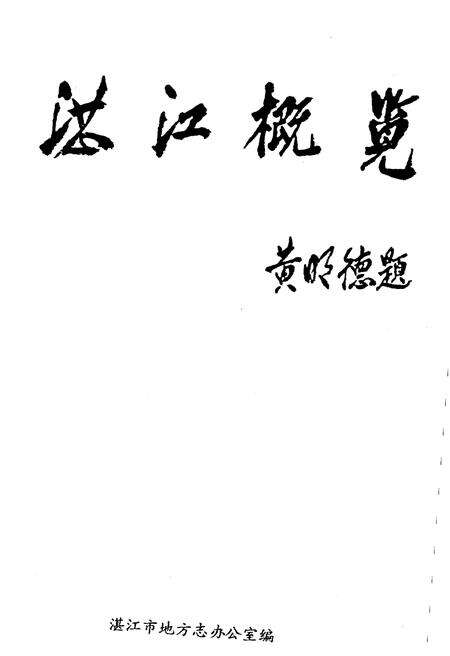 湛江概览
黄明德题
湛江市地方志办公室编